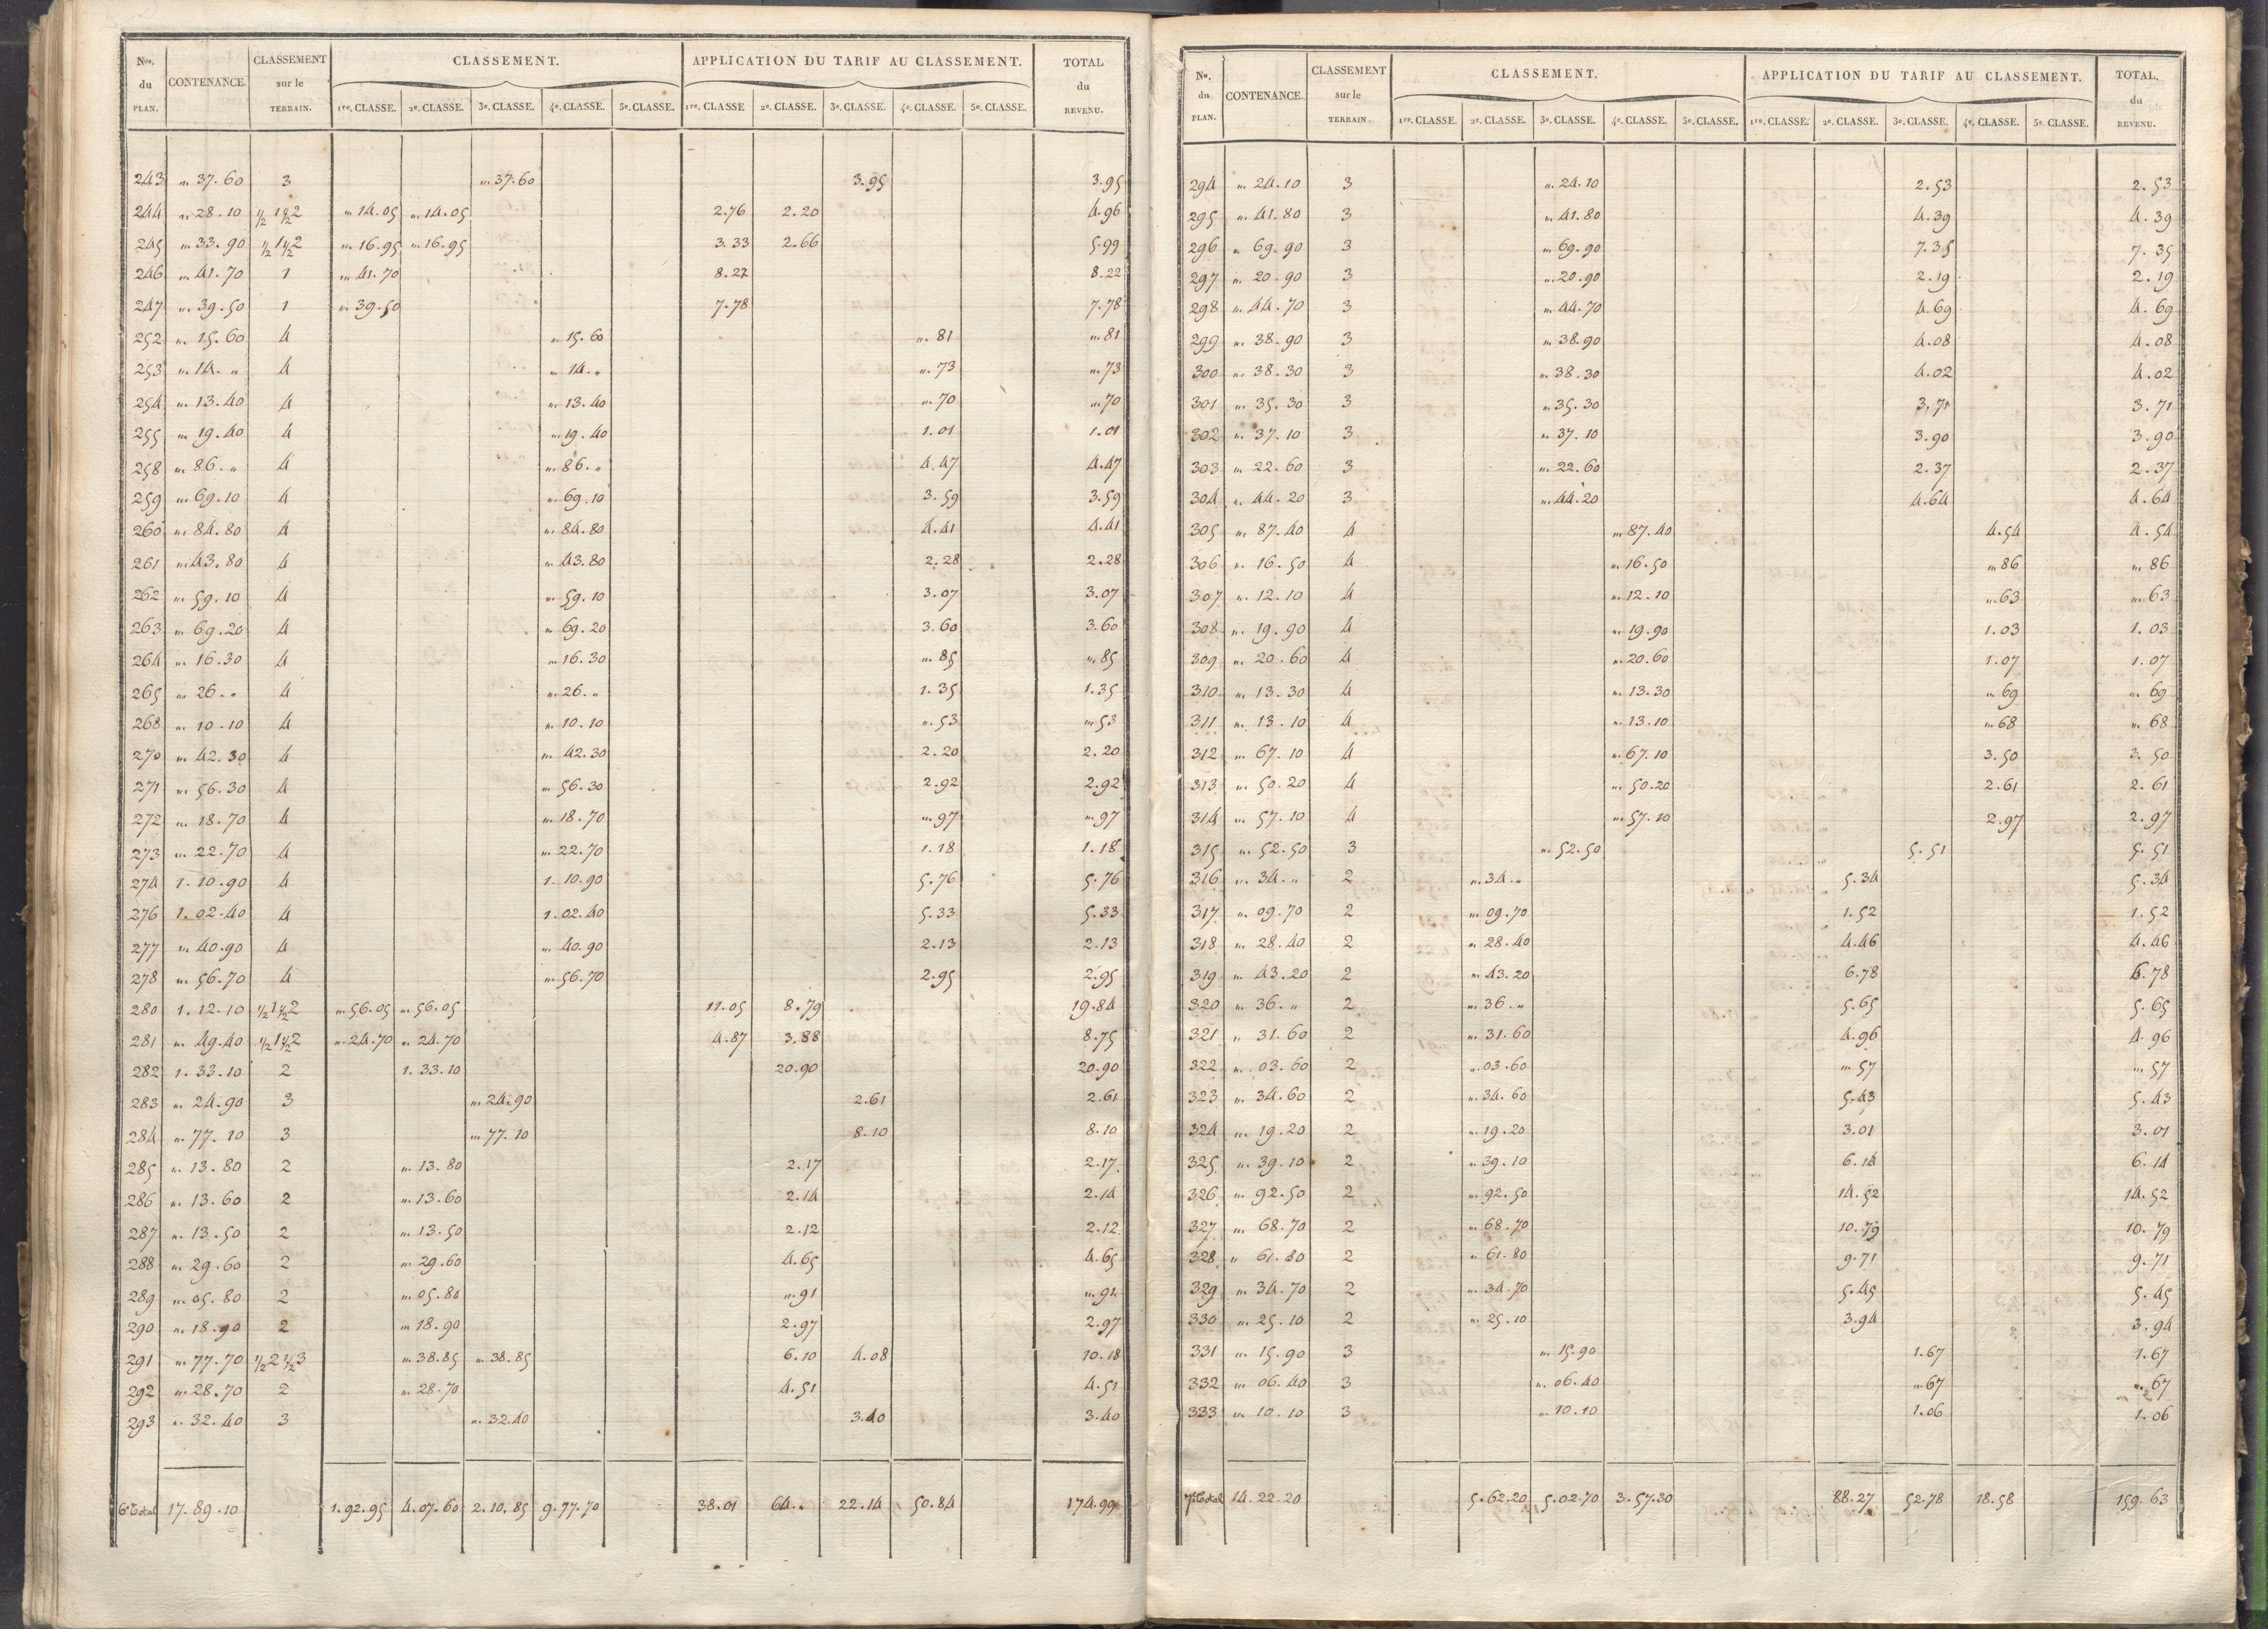 Nos. du PLAN. | CONTENANCE. | CLASSEMENT sur le TERRAIN. | CLASSEMENT. | APPLICATION DU TARIF AU CLASSEMENT. | TOTAL du REVENU.
1re. CLASSE. | 2e. CLASSE. | 3e. CLASSE. | 4e. CLASSE. | 5e. CLASSE. | 1re. CLASSE | 2e. CLASSE. | 3e. CLASSE. | 4e. CLASSE. | 5e. CLASSE.
243 | „ 37.60 | 3 | „ 37.60 | 3.95 | 3.95
244 | „ 28.10 | ½ 1 ½ 2 | „ 14.05 | „ 14.05 | 2.76 | 2.20 | 4.96
245 | „ 33.90 | ½ 1 ½ 2 | „ 16.95 | „ 16.95 | 3.33 | 2.66 | 5.99
246 | „ 41.70 | 1 | „ 41.70 | 8.22 | 8.22
247 | „ 39.50 | 1 | „ 39.50 | 7.78 | 7.78
252 | „ 15.60 | 4 | „ 15.60 | „ 81 | „ 81
253 | „ 14. „ | 4 | „ 14. „ | „ 73 | „ 73
254 | „ 13.40 | 4 | „ 13.40 | „ 70 | „ 70
255 | „ 19.40 | 4 | „ 19.40 | 1.01 | 1.01
258 | „ 86. „ | 4 | „ 86. „ | 4.47 | 4.47
259 | „ 69.10 | 4 | „ 69.10 | 3.59 | 3.59
260 | „ 84.80 | 4 | „ 84.80 | 4.41 | 4.41
261 | „ 43.80 | 4 | „ 43.80 | 2.28 | 2.28
262 | „ 59.10 | 4 | „ 59.10 | 3.07 | 3.07
263 | „ 69.20 | 4 | „ 69.20 | 3.60 | 3.60
264 | „ 16.30 | 4 | „ 16.30 | „ 85 | „ 85
265 | „ 26. „ | 4 | „ 26. „ | 1.35 | 1.35
268 | „ 10.10 | 4 | „ 10.10 | „ 53 | „ 53
270 | „ 42.30 | 4 | „ 42.30 | 2.20 | 2.20
271 | „ 56.30 | 4 | „ 56.30 | 2.92 | 2.92
272 | „ 18.70 | 4 | „ 18.70 | „ 97 | „ 97
273 | „ 22.70 | 4 | „ 22.70 | 1.18 | 1.18
274 | 1.10.90 | 4 | 1.10.90 | 5.76 | 5.76
276 | 1.02.40 | 4 | 1.02.40 | 5.33 | 5.33
277 | „ 40.90 | 4 | „ 40.90 | 2.13 | 2.13
278 | „ 56.70 | 4 | „ 56.70 | 2.95 | 2.95
280 | 1.12.10 | ½ 1 ½ 2 | „ 56.05 | „ 56.05 | 11.05 | 8.79 | 19.84
281 | „ 49.40 | ½ 1 ½ 2 | „ 24.70 | „ 24.70 | 4.87 | 3.88 | 8.75
282 | 1.33.10 | 2 | 1.33.10 | 20.90 | 20.90
283 | „ 24.90 | 3 | „ 24.90 | 2.61 | 2.61
284 | „ 77.10 | 3 | „ 77.10 | 8.10 | 8.10
285 | „ 13.80 | 2 | „ 13.80 | 2.17 | 2.17
286 | „ 13.60 | 2 | „ 13.60 | 2.14 | 2.14
287 | „ 13.50 | 2 | „ 13.50 | 2.12 | 2.12
288 | „ 29.60 | 2 | „ 29.60 | 4.65 | 4.65
289 | „ 05.80 | 2 | „ 05.80 | „ 91 | „ 91
290 | „ 18.90 | 2 | „ 18.90 | 2.97 | 2.97
291 | „ 77.70 | ½ 2 ½ 3 | „ 38.85 | „ 38.85 | 6.10 | 4.08 | 10.18
292 | „ 28.70 | 2 | „ 28.70 | 4.51 | 4.51
293 | „ 32.40 | 3 | „ 32.40 | 3.40 | 3.40
6e Total | 17.89.10 | 1.92.95 | 4.07.60 | 2.10.85 | 9.77.70 | 38.01 | 64. „ | 22.14 | 50.84 | 174.99
No. du PLAN. | CONTENANCE. | CLASSEMENT sur le TERRAIN. | CLASSEMENT. | APPLICATION DU TARIF AU CLASSEMENT. | TOTAL. du REVENU.
1re. CLASSE. | 2e. CLASSE. | 3e. CLASSE. | 4e. CLASSE. | 5e. CLASSE. | 1re. CLASSE. | 2e. CLASSE. | 3e. CLASSE. | 4e. CLASSE. | 5e. CLASSE.
294 | „ 24.10 | 3 | „ 24.10 | 2.53 | 2.53
295 | „ 41.80 | 3 | „ 41.80 | 4.39 | 4.39
296 | „ 69.90 | 3 | „ 69.90 | 7.35 | 7.35
297 | „ 20.90 | 3 | „ 20.90 | 2.19 | 2.19
298 | „ 44.70 | 3 | „ 44.70 | 4.69 | 4.69
299 | „ 38.90 | 3 | „ 38.90 | 4.08 | 4.08
300 | „ 38.30 | 3 | „ 38.30 | 4.02 | 4.02
301 | „ 35.30 | 3 | „ 35.30 | 3.71 | 3.71
302 | „ 37.10 | 3 | „ 37.10 | 3.90 | 3.90
303 | „ 22.60 | 3 | „ 22.60 | 2.37 | 2.37
304 | „ 44.20 | 3 | „ 44.20 | 4.64 | 4.64
305 | „ 87.40 | 4 | „ 87.40 | 4.54 | 4.54
306 | „ 16.50 | 4 | „ 16.50 | „ 86 | „ 86
307 | „ 12.10 | 4 | „ 12.10 | „ 63 | „ 63
308 | „ 19.90 | 4 | „ 19.90 | 1.03 | 1.03
309 | „ 20.60 | 4 | „ 20.60 | 1.07 | 1.07
310 | „ 13.30 | 4 | „ 13.30 | „ 69 | „ 69
311 | „ 13.10 | 4 | „ 13.10 | „ 68 | „ 68
312 | „ 67.10 | 4 | „ 67.10 | 3.50 | 3.50
313 | „ 50.20 | 4 | „ 50.20 | 2.61 | 2.61
314 | „ 57.10 | 4 | „ 57.10 | 2.97 | 2.97
315 | „ 52.50 | 3 | „ 52.50 | 5.51 | 5.51
316 | „ 34. „ | 2 | „ 34. „ | 5.34 | 5.34
317 | „ 09.70 | 2 | „ 09.70 | 1.52 | 1.52
318 | „ 28.40 | 2 | „ 28.40 | 4.46 | 4.46
319 | „ 43.20 | 2 | „ 43.20 | 6.78 | 6.78
320 | „ 36. „ | 2 | „ 36. „ | 5.65 | 5.65
321 | „ 31.60 | 2 | „ 31.60 | 4.96 | 4.96
322 | „ 03.60 | 2 | „ 03.60 | „ 57 | „ 57
323 | „ 34.60 | 2 | „ 34.60 | 5.43 | 5.43
324 | „ 19.20 | 2 | „ 19.20 | 3.01 | 3.01
325 | „ 39.10 | 2 | „ 39.10 | 6.14 | 6.14
326 | „ 92.50 | 2 | „ 92.50 | 14.52 | 14.52
327 | „ 68.70 | 2 | „ 68.70 | 10.79 | 10.79
328 | „ 61.80 | 2 | „ 61.80 | 9.71 | 9.71
329 | „ 34.70 | 2 | „ 34.70 | 5.45 | 5.45
330 | „ 25.10 | 2 | „ 25.10 | 3.94 | 3.94
331 | „ 15.90 | 3 | „ 15.90 | 1.67 | 1.67
332 | „ 06.40 | 3 | „ 06.40 | „ 67 | „ 67
333 | „ 10.10 | 3 | „ 10.10 | 1.06 | 1.06
7e Total | 14.22.20 | 5.62.20 | 5.02.70 | 3.57.30 | 88.27 | 52.78 | 18.58 | 159.63